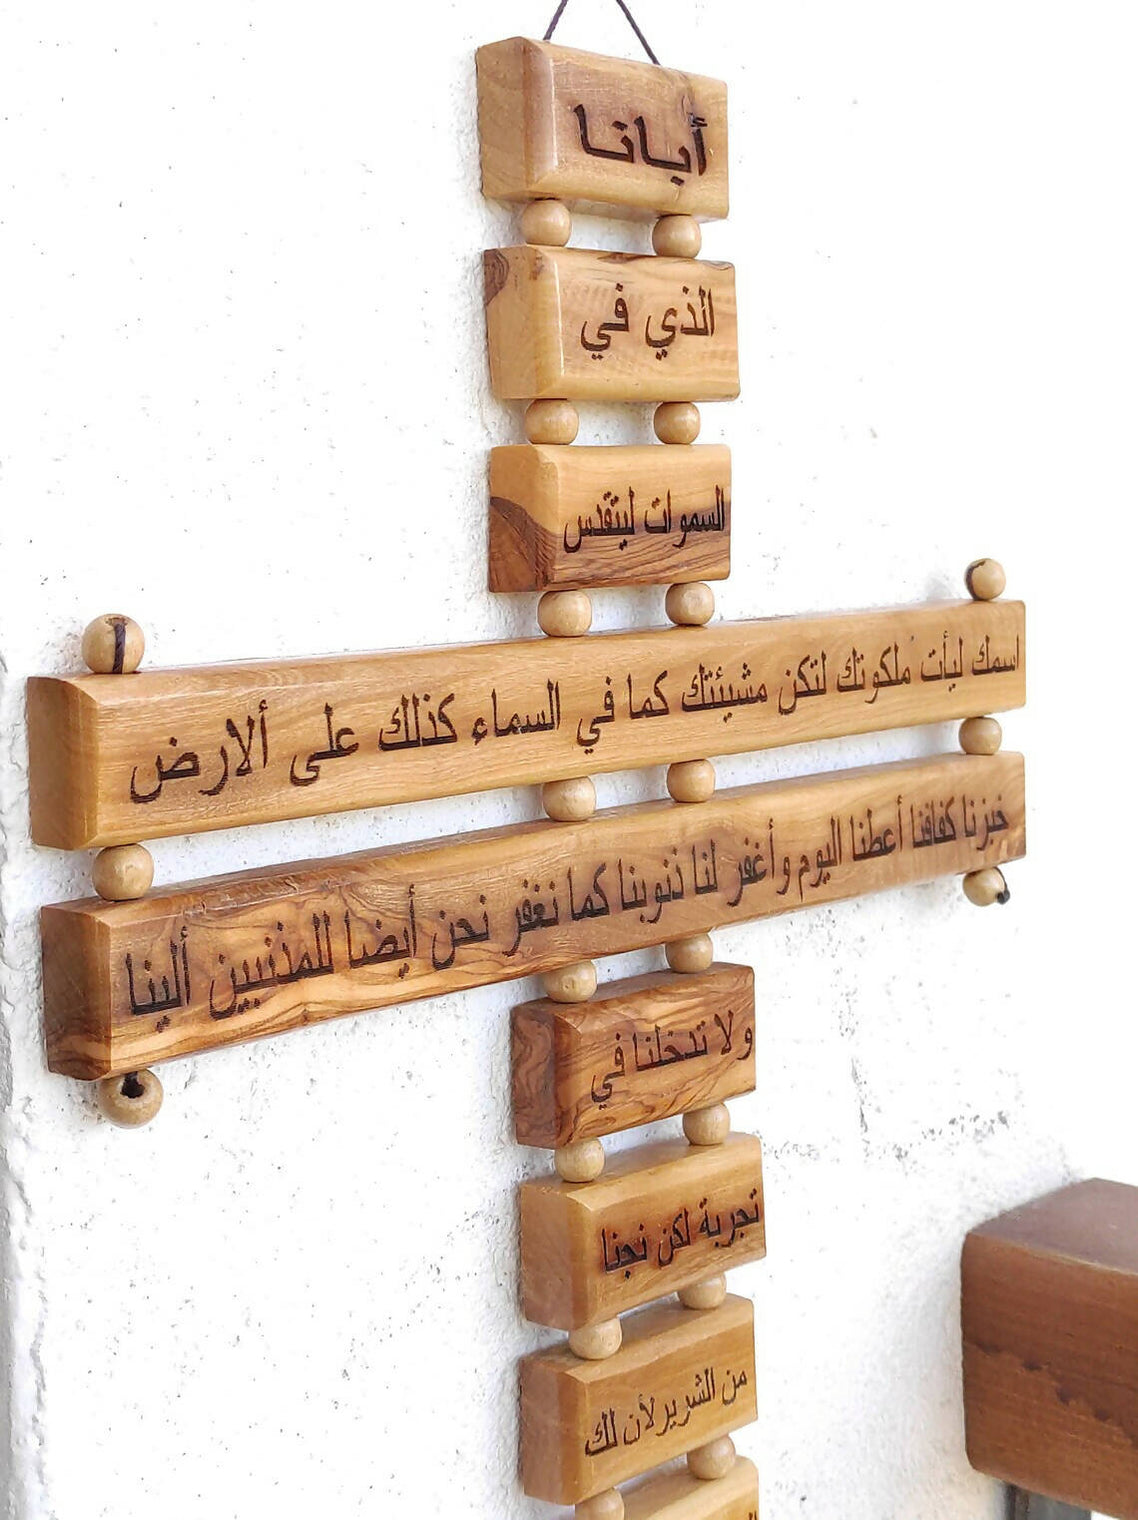 أبانا
الذي في
السموات ليتقدس
اسمك ليأت ملكوتك لتكن مشيئتك كما في السماء كذلك على ألارض
خبزنا كفافنا أعطنا اليوم وأغفر لنا ذنوبنا كما نغفر نحن أيضا للمذنبين ألينا
ولا تدخلنا في
تجربة لكن نجنا
من الشرير لأن لك